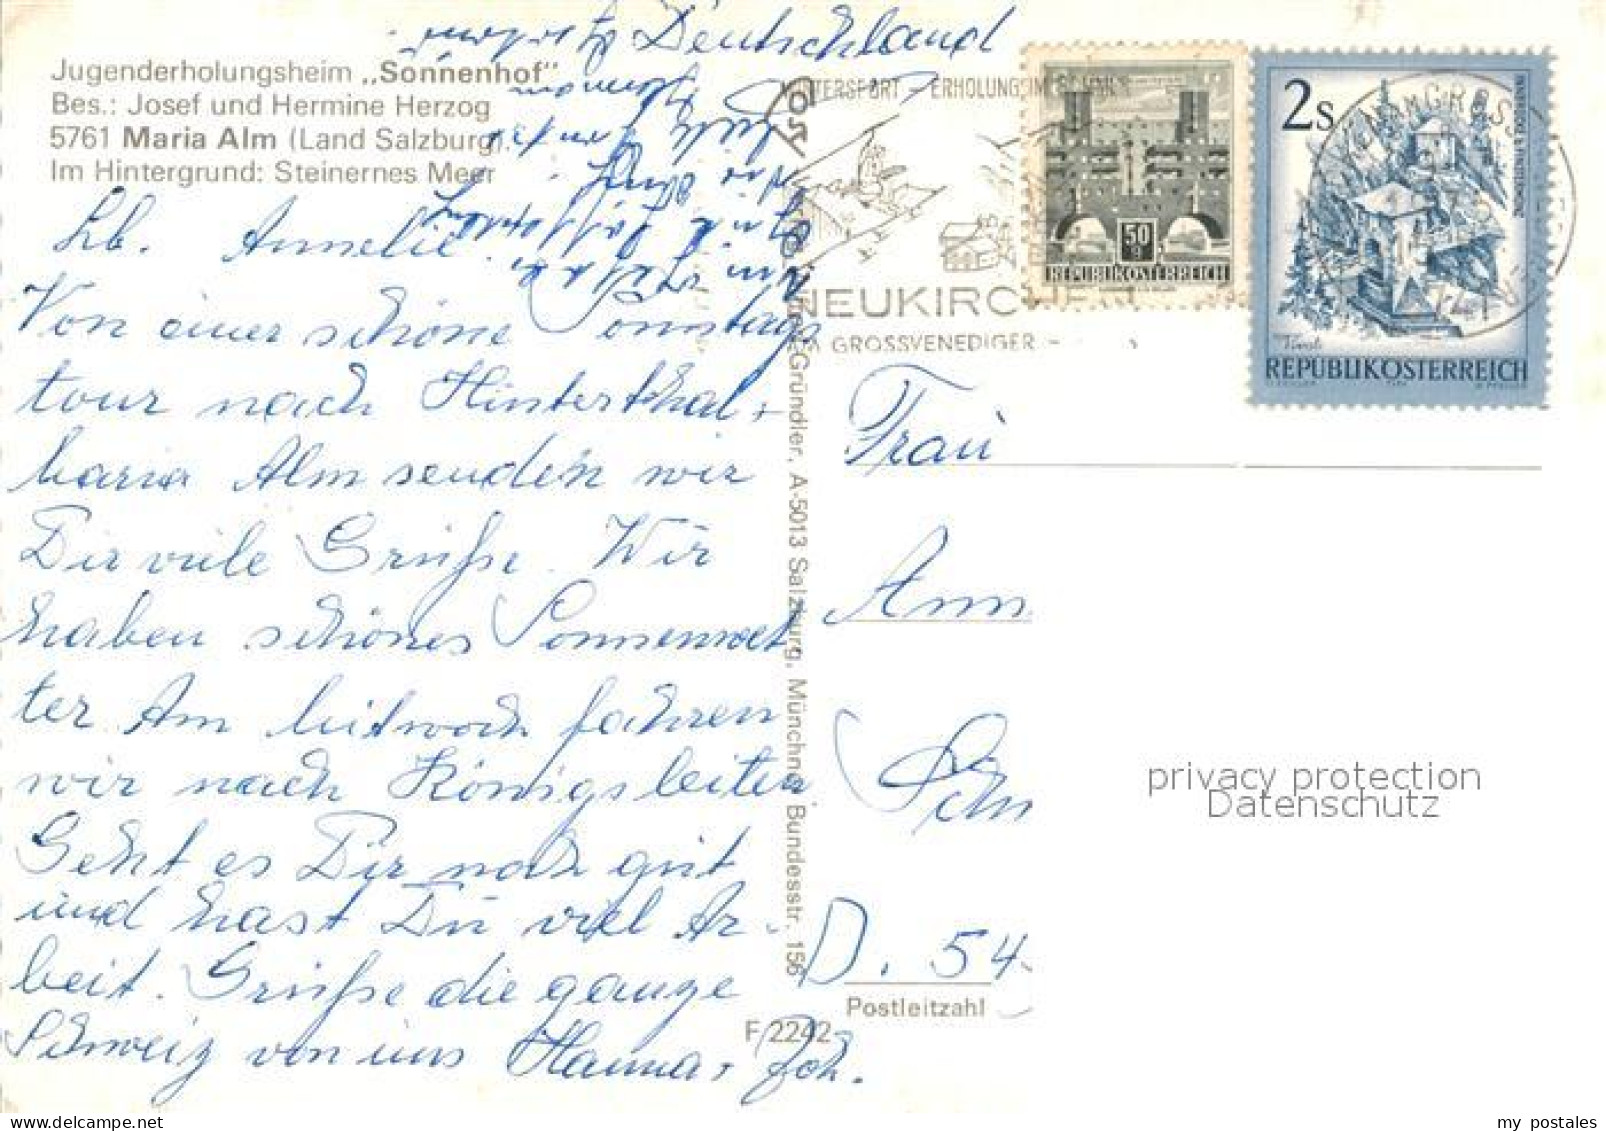 Deutschland
Jugenderholungsheim „Sonnenhof“
Bes.: Josef und Hermine Herzog
5761 Maria Alm (Land Salzburg).
Im Hintergrund: Steinernes Meer
Lb. Annelie
Von einer schöne Sonntags
tour nach Hinterthal +
Maria Alm senden wir
Dir viele Grüße. Wir
haben schönes Sonnenwet
ter. Am Mitwoch fahren
wir nach Königsleiten
Geht es Dir noch gut
und hast Du viel Ar-
beit. Grüße die ganze
Schweiz von uns Hanna +
Gründler, A-5013 Salzburg, Münchner Bundesstr. 156
F 2242
WINTERSPORT - ERHOLUNG IM SOMMER
NEUKIRCHEN
AM GROSSVENEDIGER
50
g
REPUBLIK ÖSTERREICH
2s
REPUBLIK ÖSTERREICH
Frau
Ann
Sch
D. 54
Postleitzahl
privacy protection
Datenschutz
my_postales